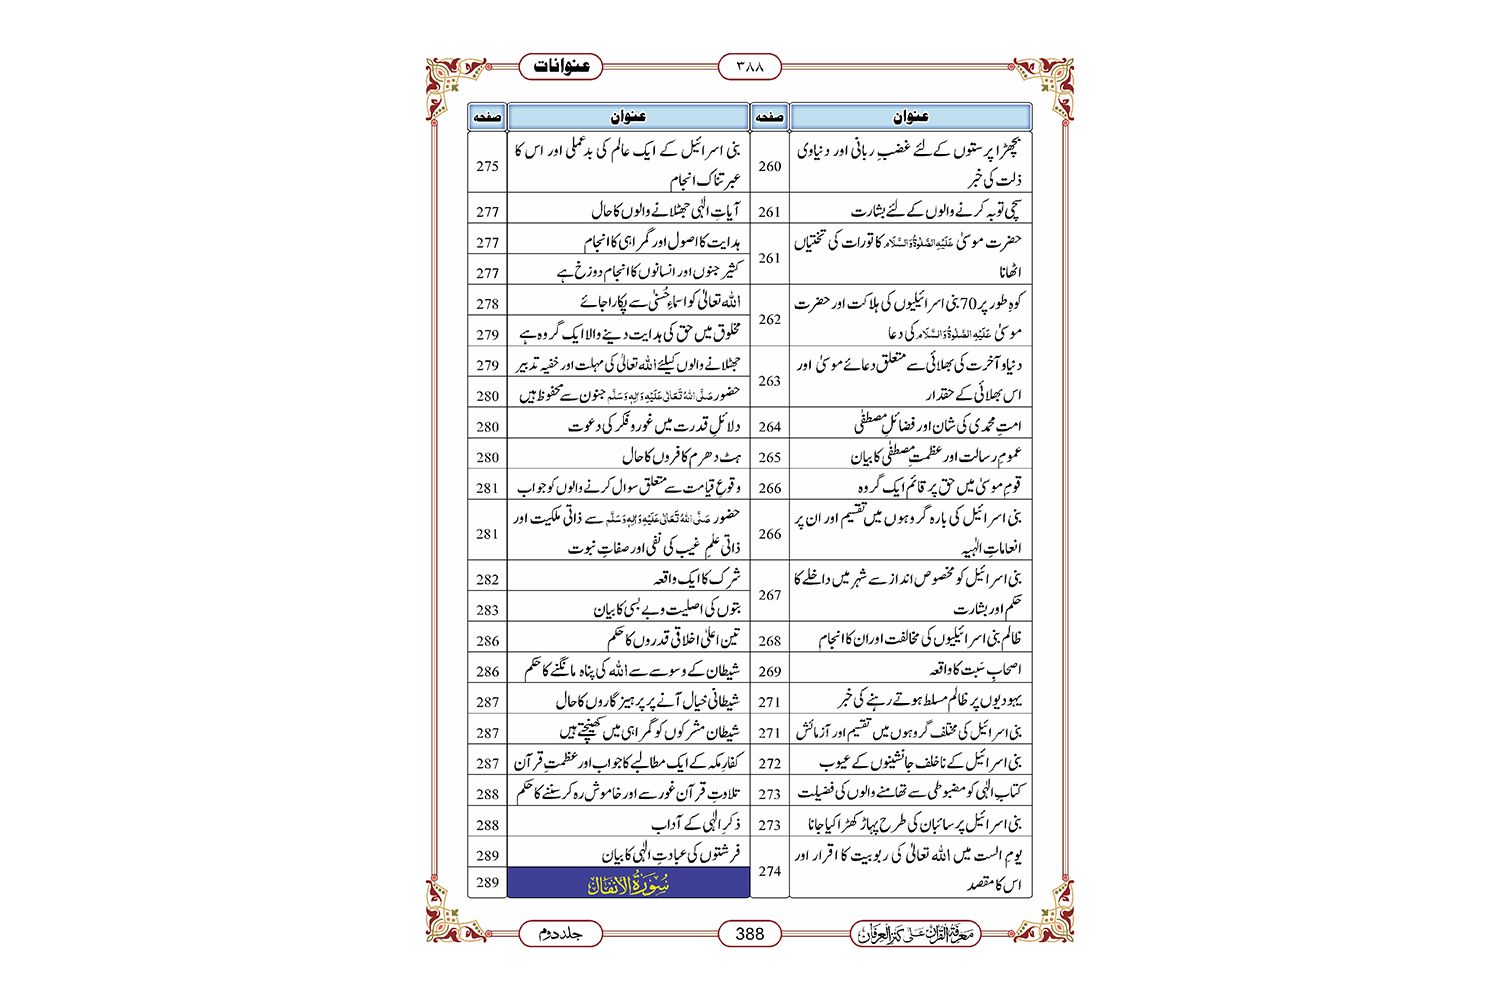 عنوانات
۳۸۸
عنوان
صفحہ
بچھڑا پرستوں کے لئے غضبِ ربانی اور دنیاوی
ذلت کی خبر
260
سچی توبہ کرنے والوں کے لئے بشارت
261
حضرت موسیٰ عَلَیْہِ الصَّلٰوۃُ وَالسَّلَام کا تورات کی تختیاں
اٹھانا
261
کوہِ طور پر 70 بنی اسرائیلیوں کی ہلاکت اور حضرت
موسیٰ عَلَیْہِ الصَّلٰوۃُ وَالسَّلَام کی دعا
262
دنیا و آخرت کی بھلائی سے متعلق دعائے موسیٰ اور
اس بھلائی کے حقدار
263
امتِ محمدی کی شان اور فضائلِ مصطفٰی
264
عمومِ رسالت اور عظمتِ مصطفٰی کا بیان
265
قومِ موسیٰ میں حق پر قائم ایک گروہ
266
بنی اسرائیل کی بارہ گروہوں میں تقسیم اور ان پر
انعاماتِ الٰہیہ
266
بنی اسرائیل کو مخصوص انداز سے شہر میں داخلے کا
حکم اور بشارت
267
ظالم بنی اسرائیلیوں کی مخالفت اور ان کا انجام
268
اصحابِ سَبت کا واقعہ
269
یہودیوں پر ظالم مسلط ہوتے رہنے کی خبر
271
بنی اسرائیل کی مختلف گروہوں میں تقسیم اور آزمائش
271
بنی اسرائیل کے ناخلف جانشینوں کے عیوب
272
کتابِ الٰہی کو مضبوطی سے تھامنے والوں کی فضیلت
273
بنی اسرائیل پر سائبان کی طرح پہاڑ کھڑا کیا جانا
273
یومِ الست میں اللہ تعالیٰ کی ربوبیت کا اقرار اور
اس کا مقصد
274
عنوان
صفحہ
بنی اسرائیل کے ایک عالم کی بدعملی اور اس کا
عبرتناک انجام
275
آیاتِ الٰہی جھٹلانے والوں کا حال
277
ہدایت کا اصول اور گمراہی کا انجام
277
کثیر جنوں اور انسانوں کا انجام دوزخ ہے
277
اللہ تعالیٰ کو اسماءِ حُسنٰی سے پکارا جائے
278
مخلوق میں حق کی ہدایت دینے والا ایک گروہ ہے
279
جھٹلانے والوں کیلئے اللہ تعالیٰ کی مہلت اور خفیہ تدبیر
279
حضور صَلَّی اللہُ تَعَالٰی عَلَیْہِ وَاٰلِہٖ وَسَلَّم جنون سے محفوظ ہیں
280
دلائلِ قدرت میں غور و فکر کی دعوت
280
ہٹ دھرم کافروں کا حال
280
وقوعِ قیامت سے متعلق سوال کرنے والوں کو جواب
281
حضور صَلَّی اللہُ تَعَالٰی عَلَیْہِ وَاٰلِہٖ وَسَلَّم سے ذاتی ملکیت اور
ذاتی علمِ غیب کی نفی اور صفاتِ نبوت
281
شرک کا ایک واقعہ
282
بتوں کی اصلیت و بے بسی کا بیان
283
تین اعلیٰ اخلاقی قدروں کا حکم
286
شیطان کے وسوسے سے اللہ کی پناہ مانگنے کا حکم
286
شیطانی خیال آنے پر پرہیزگاروں کا حال
287
شیطان مشرکوں کو گمراہی میں کھینچتے ہیں
287
کفارِ مکہ کے ایک مطالبے کا جواب اور عظمتِ قرآن
287
تلاوتِ قرآن غور سے اور خاموش رہ کر سننے کا حکم
288
ذکرِ الٰہی کے آداب
288
فرشتوں کی عبادتِ الٰہی کا بیان
289
سُوْرَۃُ الْاَنْفَال
289
معرفۃ القرآن علیٰ کنز العرفان
388
جلد دوم